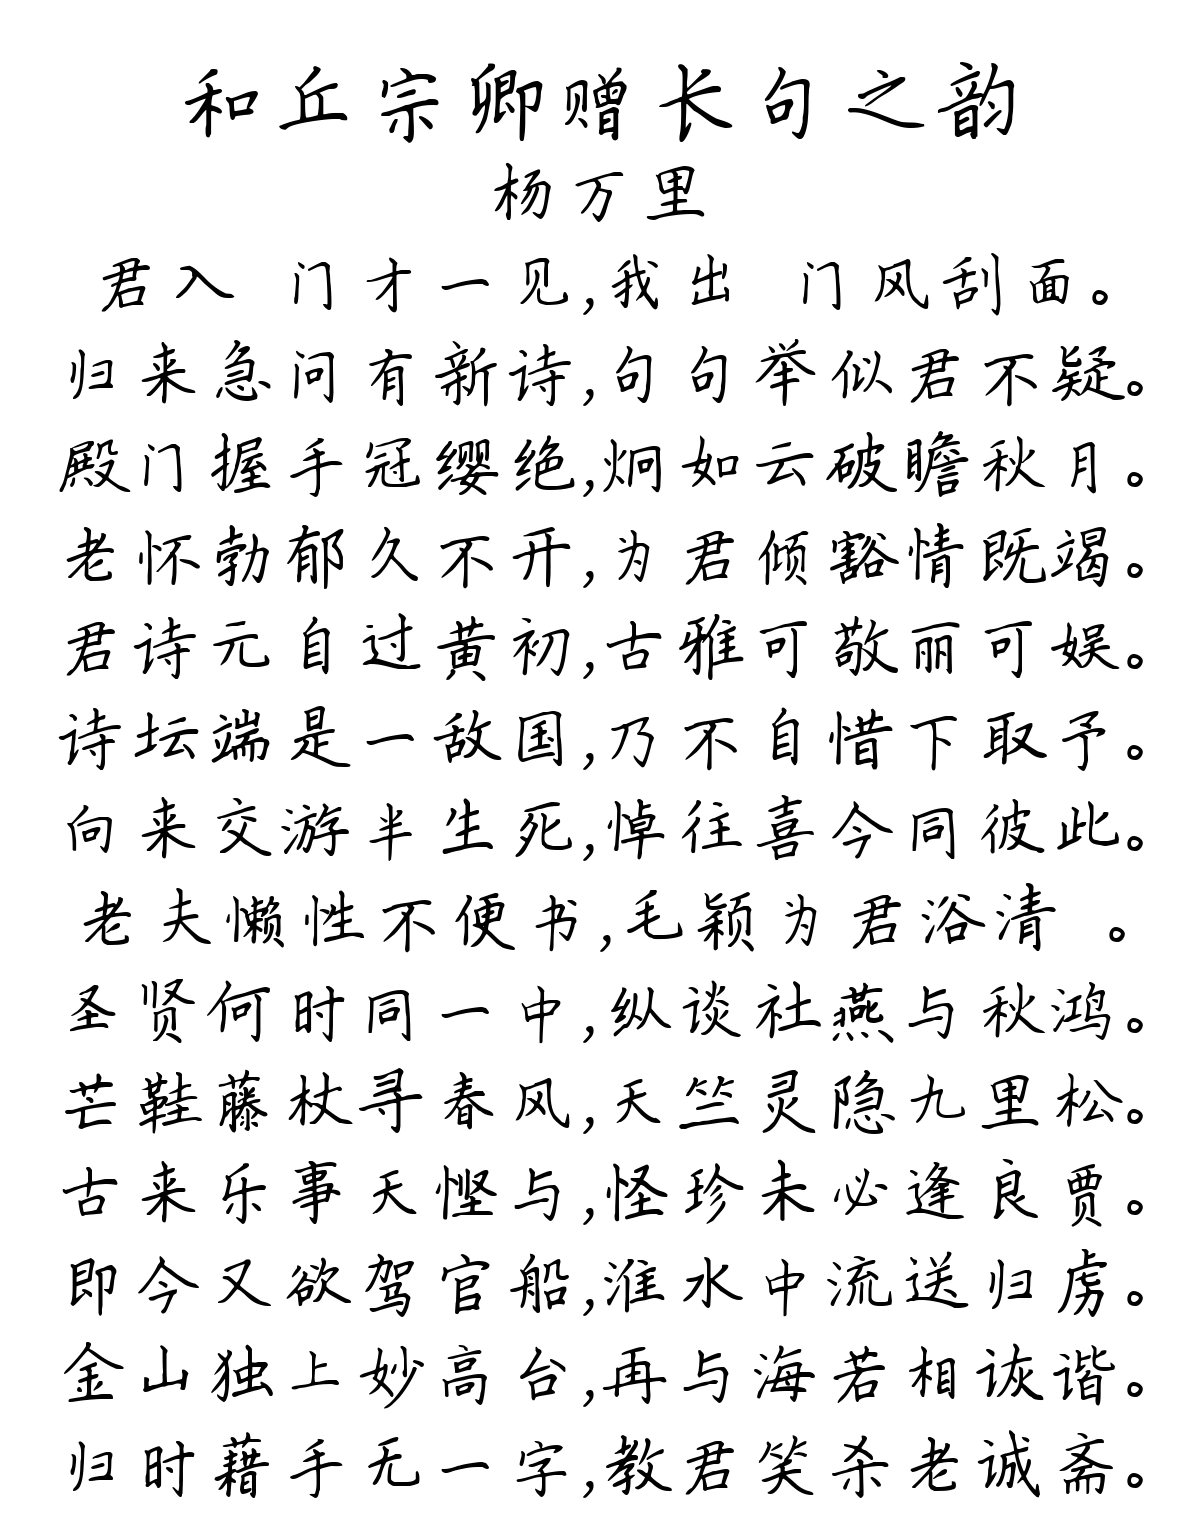 和丘宗卿赠长句之韵
杨万里
君入 门才一见,我出 门风刮面。
归来急问有新诗,句句举似君不疑。
殿门握手冠缨绝,炯如云破瞻秋月。
老怀勃郁久不开,为君倾豁情既竭。
君诗元自过黄初,古雅可敬丽可娱。
诗坛端是一敌国,乃不自惜下取予。
向来交游半生死,悼往喜今同彼此。
老夫懒性不便书,毛颖为君浴清 。
圣贤何时同一中,纵谈社燕与秋鸿。
芒鞋藤杖寻春风,天竺灵隐九里松。
古来乐事天悭与,怪珍未必逢良贾。
即今又欲驾官船,淮水中流送归虏。
金山独上妙高台,再与海若相诙谐。
归时藉手无一字,教君笑杀老诚斋。